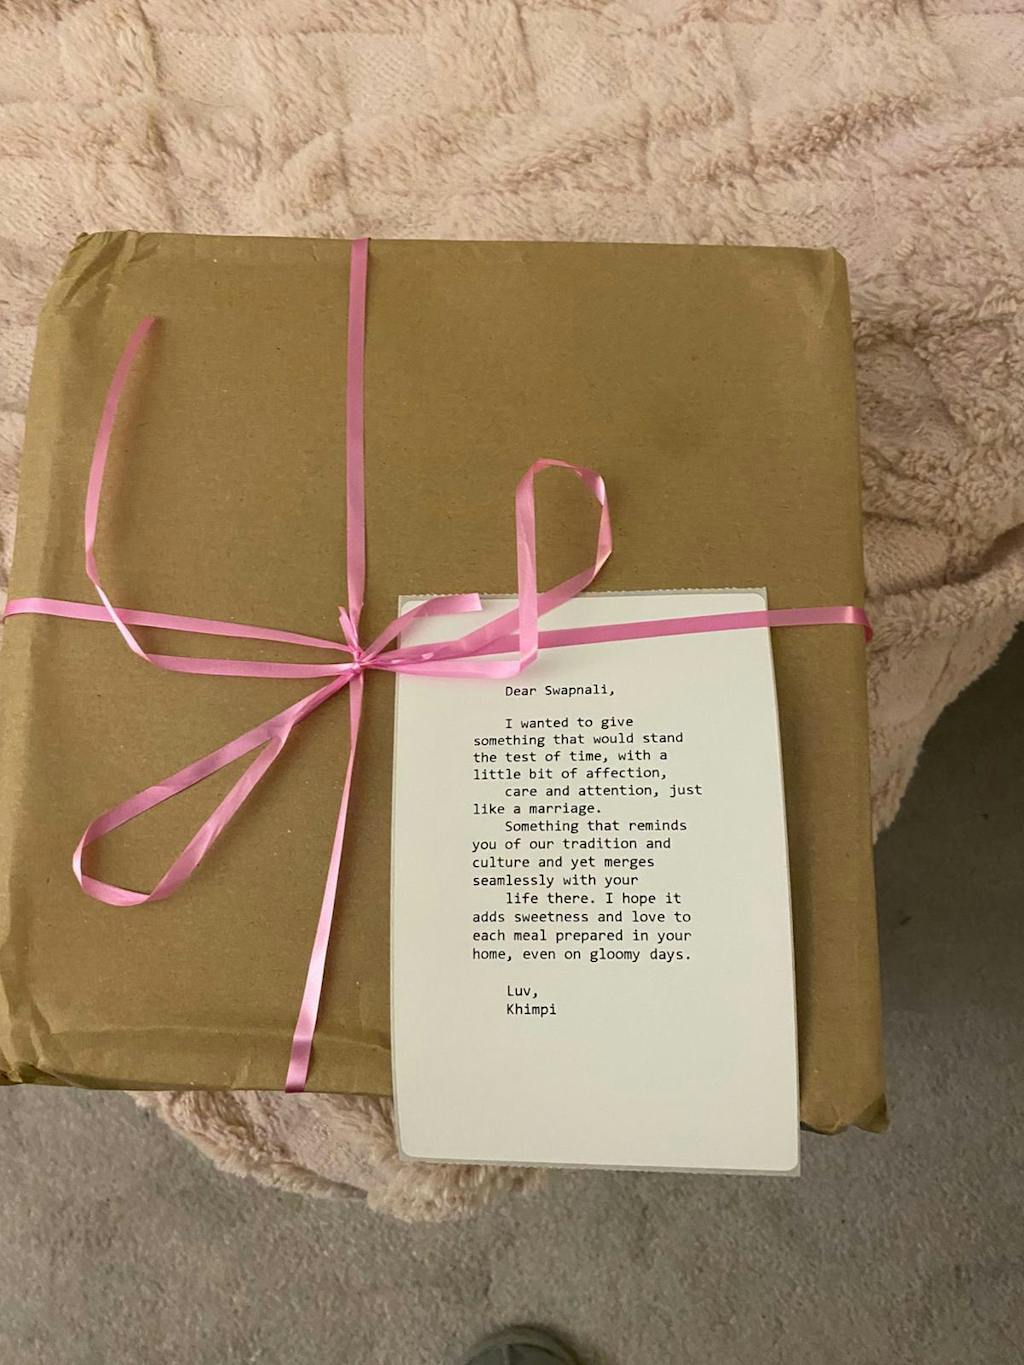 Dear Swapnali,
I wanted to give
something that would stand
the test of time, with a
little bit of affection,
care and attention, just
like a marriage.
Something that reminds
you of our tradition and
culture and yet merges
seamlessly with your
life there. I hope it
adds sweetness and love to
each meal prepared in your
home, even on gloomy days.
Luv,
Khimpi